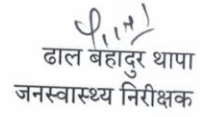 ढाल बहादुर थापा
जनस्वास्थ्य निरीक्षक